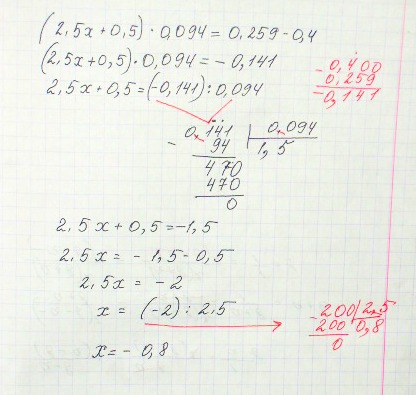 (2,5x+0,5)·0,094=0,259-0,4
(2,5x+0,5)·0,094=-0,141
2,5x+0,5=(-0,141):0,094
-0,400
0,259
-0,141
0,141 | 0,094
- 94 | 1,5
470
470
0
2,5x+0,5=-1,5
2,5x=-1,5-0,5
2,5x=-2
x=(-2):2,5
-200|2,5
200|0,8
0
x=-0,8